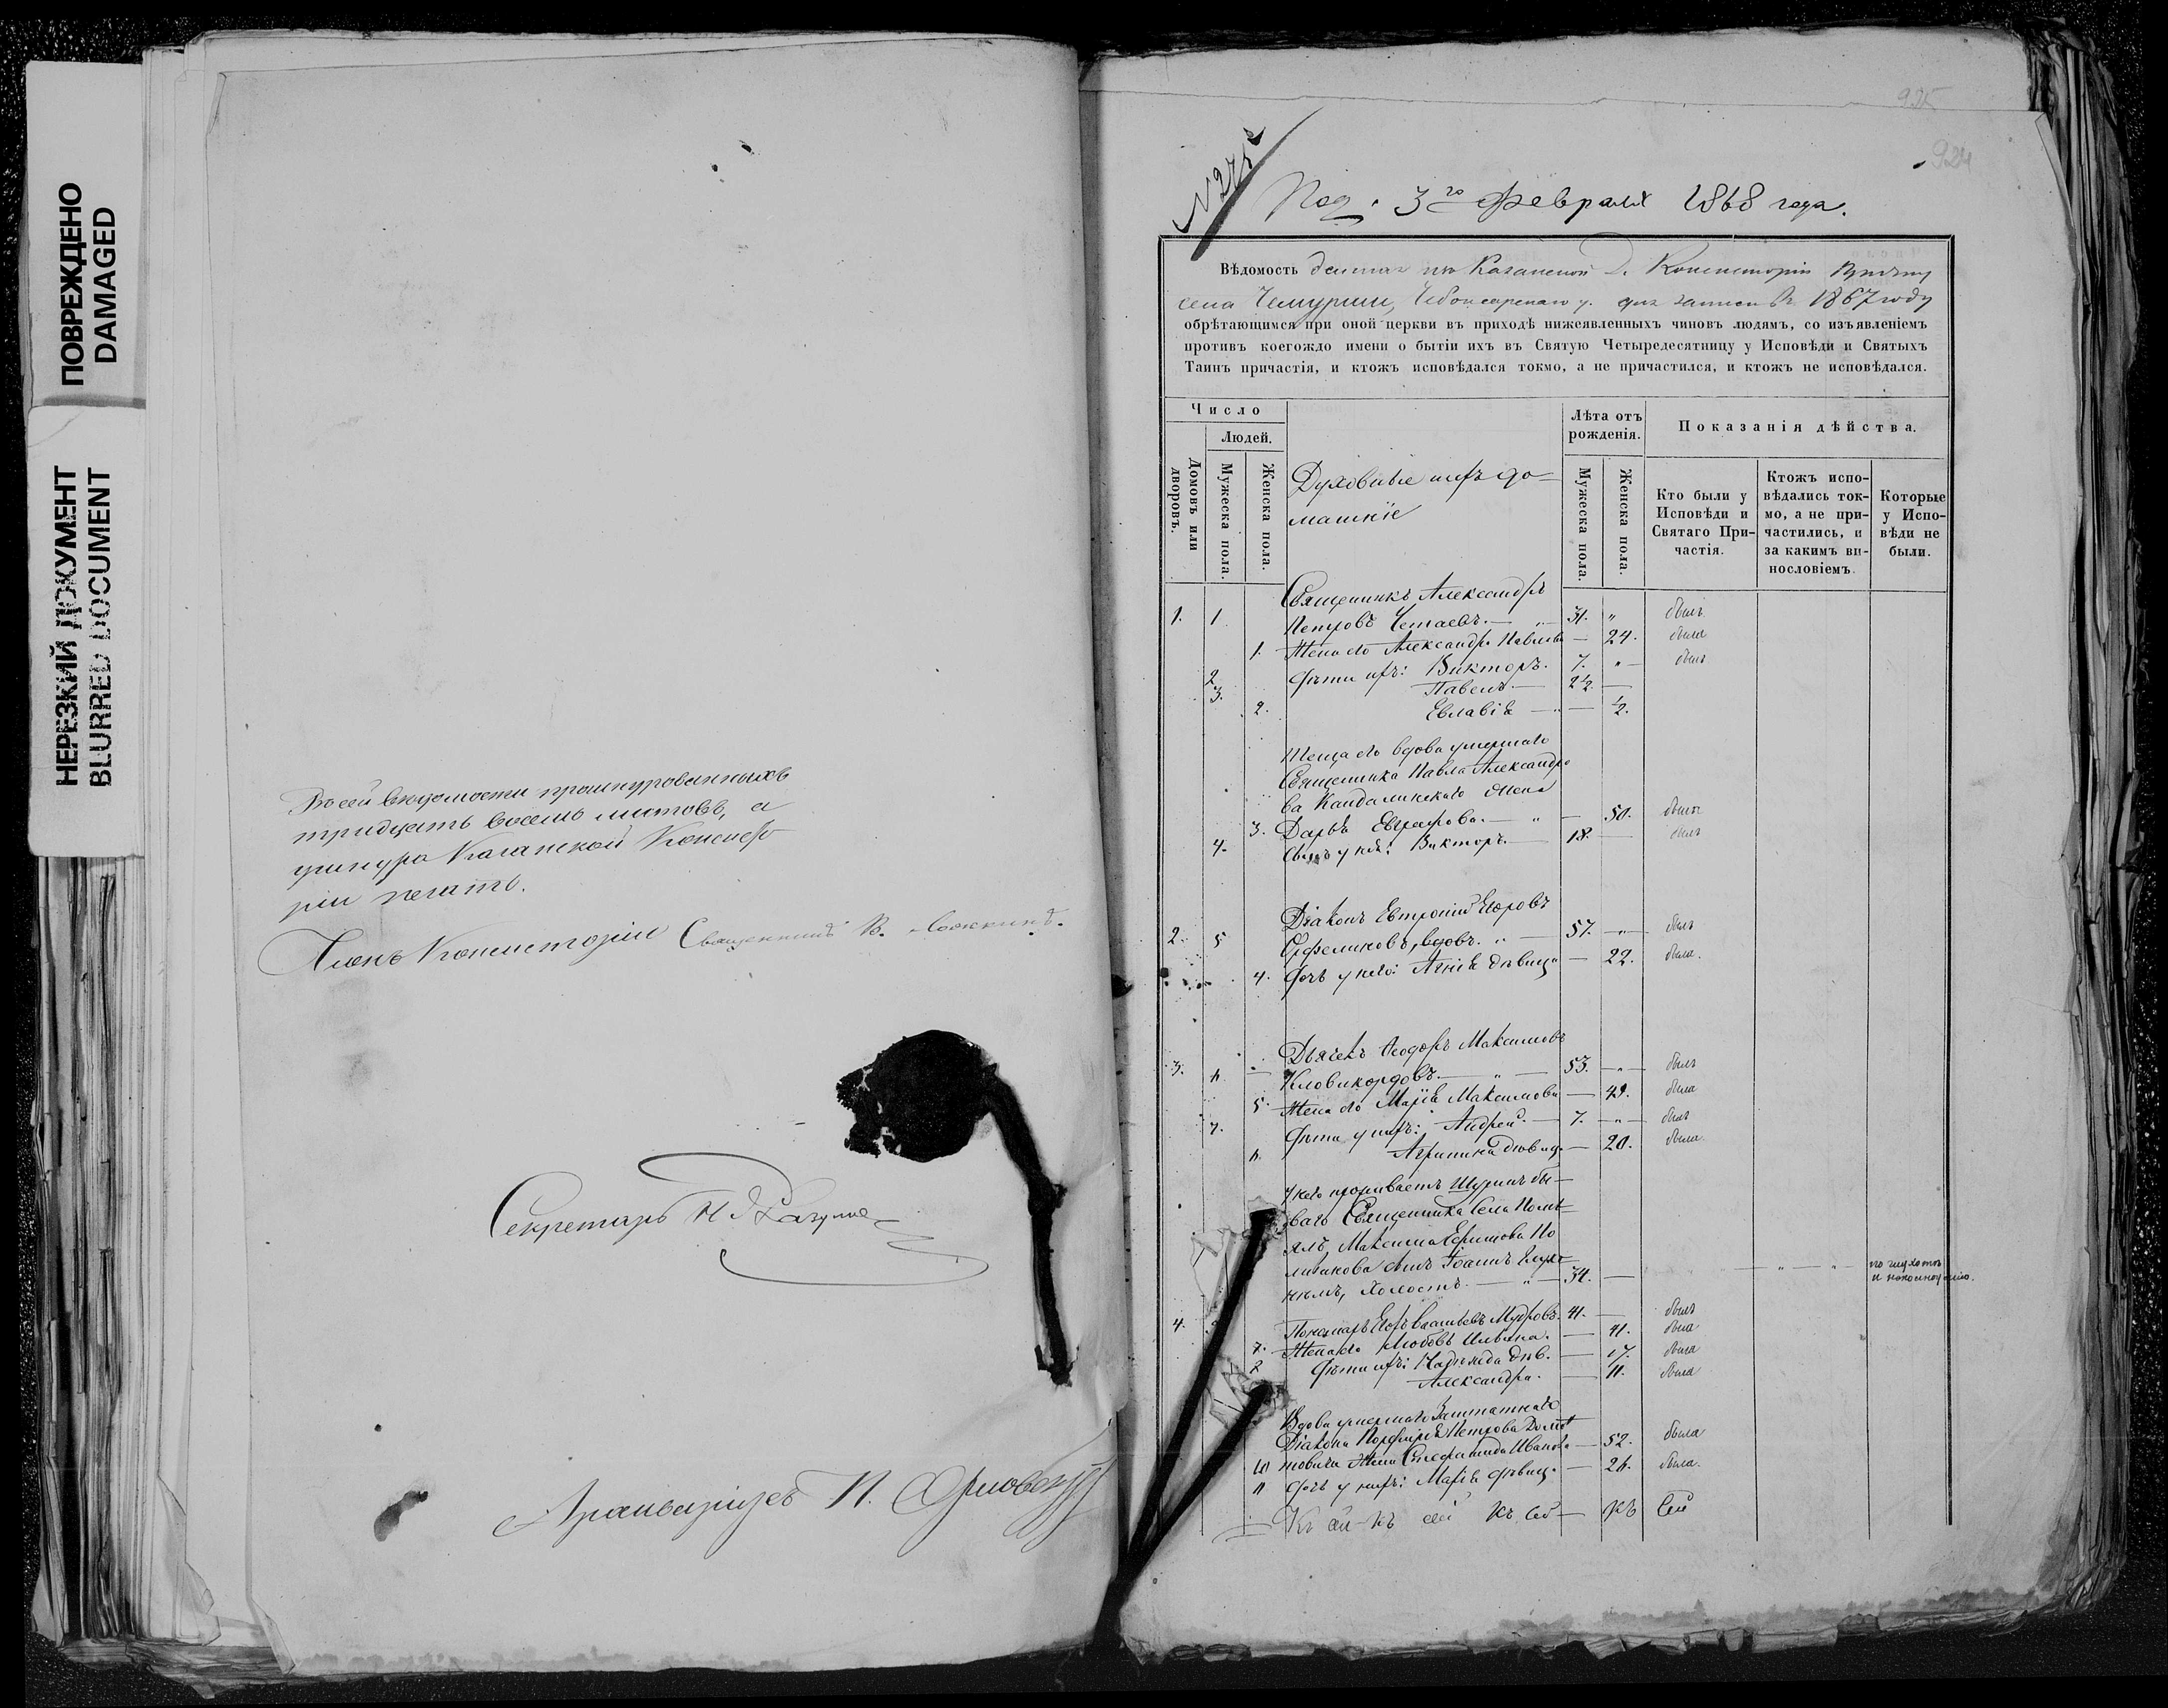 ПОВРЕЖДЕНО
DAMAGED
НЕРЕЗКИЙ ДОКУМЕНТ
BLURRED DOCUMENT
Въ сей вѣдомости прошнурованныхъ
тридцать восемь листовъ, а
шнура Казанской Консисто
ріи печать.
Членъ Консисторіи Священникъ В.
Секретарь Н
Канцеляристъ П. Орловскій
924
Под. 3го Февраля 1868 года.
Вѣдомость данная изъ Казанской Д. Консисторіи причту
села Чемурши, Чебоксарскаго у. для записи въ 1867 году
обрѣтающимся при оной церкви въ приходѣ нижеявленныхъ чиновъ людямъ, со изъявленіемъ
противъ коегождо имени о бытіи ихъ въ Святую Четыредесятницу у Исповѣди и Святыхъ
Таинъ причастія, и ктожъ исповѣдался токмо, а не причастился, и ктожъ не исповѣдался.
Число
Людей.
Домовъ или дворовъ.
Мужеска пола.
Женска пола.
Духовные ихъ до-
машніе
Лѣта отъ рожденія.
Мужеска пола.
Женска пола.
Показанія дѣйства.
Кто были у Исповѣди и Святаго При-частія.
Ктожъ испо-вѣдались ток-мо, а не при-частились, и за какимъ ви-нословіемъ.
Которые у Испо-вѣди не были.
Священникъ Александръ
1. 1. Петровъ Четаевъ. — „ — 31. „ былъ
1. Жена его Александра Павлова — 24. была
2 Дѣти ихъ: Викторъ. 7. „ — былъ
3. Павелъ. — 2½. —
2. Евлавія — „ — ½.
Теща его вдова умершаго
Священника Павла Александро
ва Кандалинскаго жена
3. Дарья Евграфова. — „ — 50. была
4. Сынъ у ней: Викторъ. — 18. — былъ
Діаконъ Евтропій Егоровъ
2. 5 Орфелиновъ, вдовъ. „ — 57. — „ — былъ
4. Дочь у него: Агнія дѣвица — 22. была.
Дьячекъ Ѳеодоръ Максимовъ
3. 6 — Клавикордовъ. — „ — 53. — „ — былъ
5. Жена его Марія Максимова — 49. была
7. Дѣти у нихъ: Андрей. — 7. — „ — былъ
6. Агрипина дѣвица — 20. была.
У него проживаетъ Шуринъ бы-
ваго Священника Села
Максима Ефимова По
сынъ Іоаннъ
холостъ. — „ — 34. — — „ — „ по глухотѣ
и
4. Пономарь Егоръ Васильевъ Мудровъ. 41. — былъ
7. Жена его Любовь Ильина. — 41. была
8 Дѣти ихъ: Надежда дѣв. — 17. была
Александра. — 11. была
Вдова умершаго Заштатнаго
Діакона Порфирія Петрова
10 жена Степанида Иванова — 52. была
11 Дочь у нихъ: Марія дѣвица. — 26. была.
Къ сей къ сей къ сей — къ сей